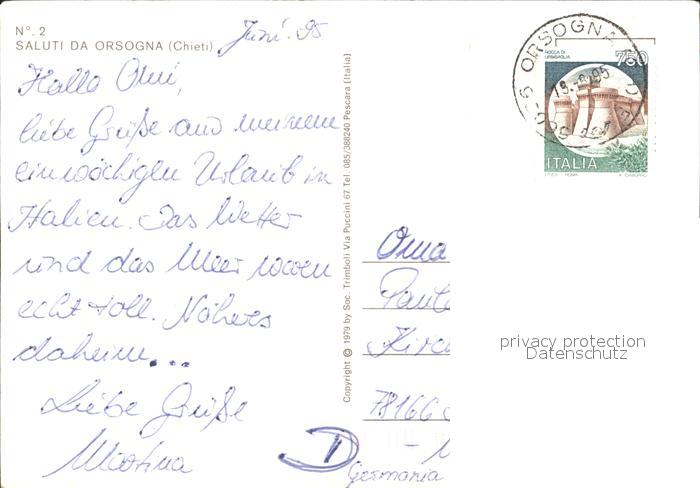 N°. 2
SALUTI DA ORSOGNA (Chieti)
Juni 95
Hallo Omi,
liebe Grüße aus meinem
einwöchigen Urlaub in
Italien. Das Wetter
und das Meer waren
echt toll. Näheres
daheim...
Liebe Grüße
Martina
Copyright © 1979 by Soc. Trimboli Via Puccini 67 Tel. 085/388240 Pescara (Italia)
ORSOGNA
ROCCA DI
URBISAGLIA
750
ITALIA
I.P.Z.S. ROMA
Oma
78166
D
Germania
privacy protection
Datenschutz